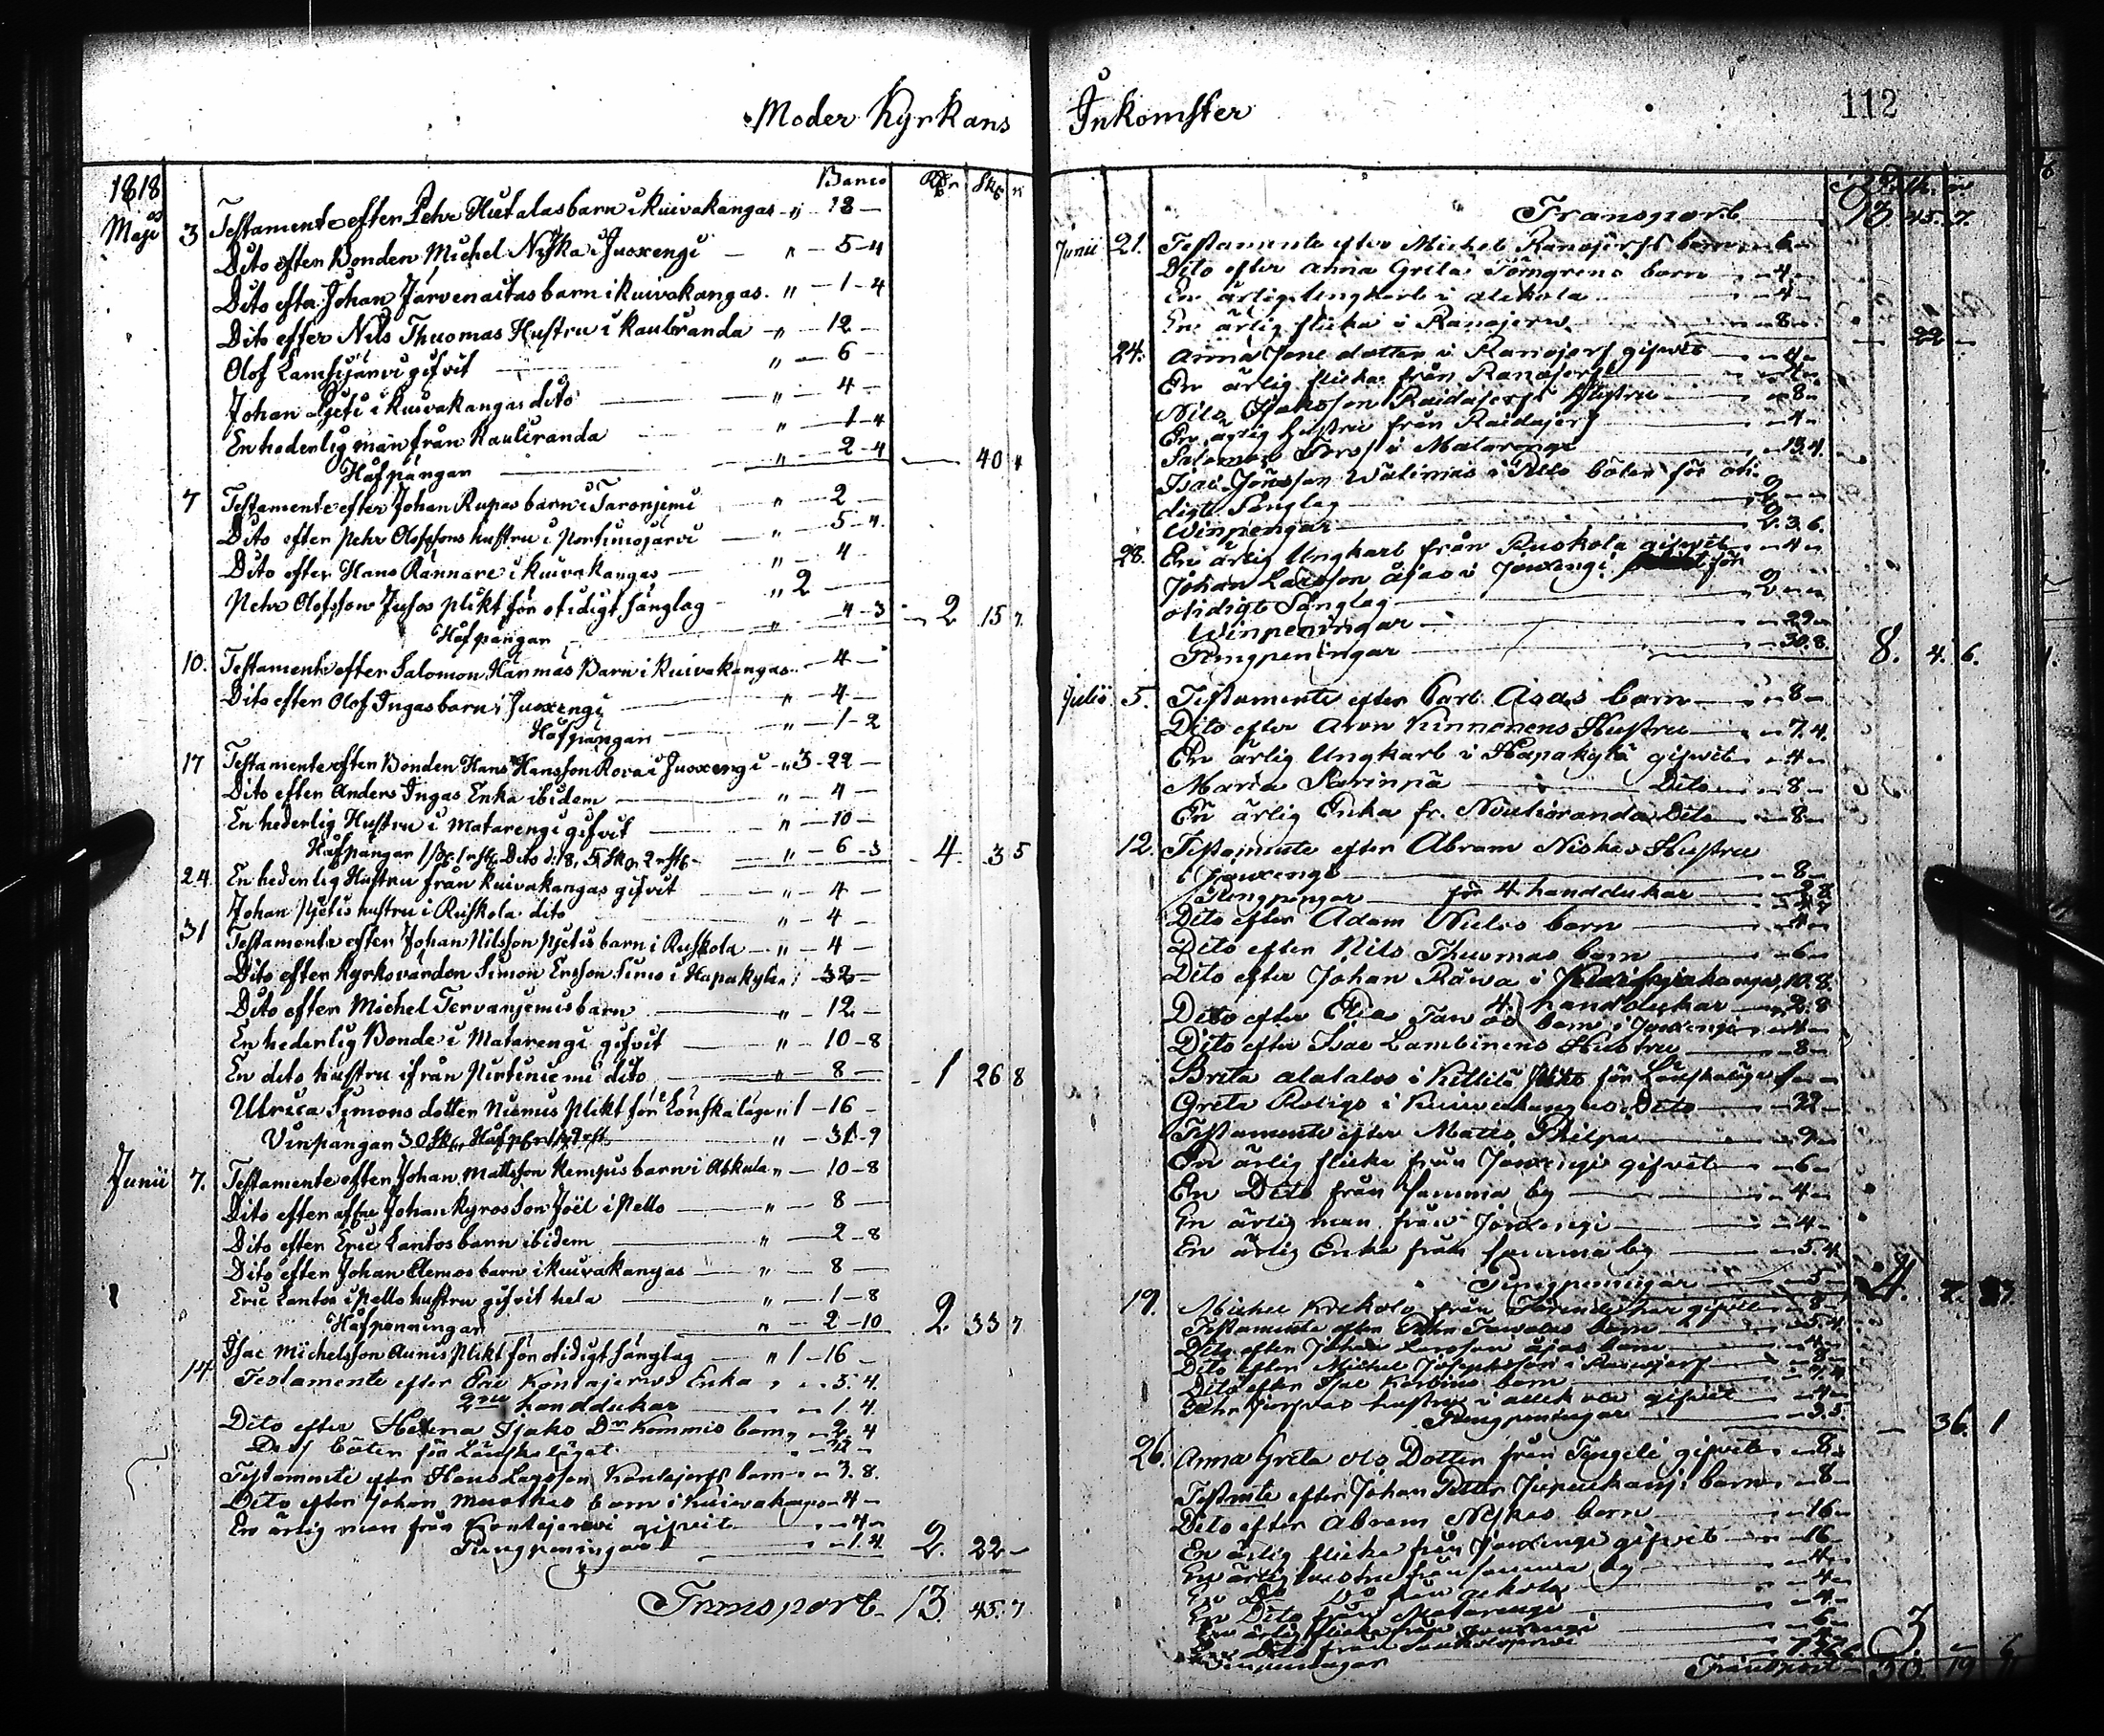 Moder Kyrkans Inkomster
112
1818 Banco Rdr Sk r
Maji 3 Testamente efter Pehr Hutalas barn i Kuivakangas " 13 —
Dito efter Bonden Michel Niska i Juoxengi — " — 5-4
Dito efter Johan Järvenaitas barn i Kuivakangas " — 1-4
Dito efter Nils Thuomas Hustru i Kauliranda — " — 12 —
Olof Lamsijärvi gifvit " — 6 —
Johan Pjeti i Kuivakangas dito — " — 4 —
En hederlig man från Kauliranda — " — 1-4
Håfpängar — " — 2-4 — 40 4
7 Testamente efter Johan Rupas barn i Taronjemi " — 2 —
Dito efter Pehr Olofssons hustru i Portimojärvi — " — 5-4
Dito efter Hans Rännare i Kuivakangas — " — 4 —
Pehr Olofsson Juhos plikt för otidigt sänglag — " 2 —
Håfpängar " — 4-3 — 2 15 7
10. Testamente efter Salomon Hannus Barn i Kuivakangas — 4 —
Dito efter Olof Ingas barn i Juoxengi — " — 4 —
Håfpängar — " — 1-2
17 Testamente efter Bonden Hans Hansson Rova i Juoxengi — " 3-22 —
Dito efter Anders Ingas Enka ibidem — " — 4 —
En hederlig Hustru i Matarengi gifvit — " — 10 —
Håfpängar Dito d. 18, — " — 6-3 — 4 3 5
24 En hederlig Hustru från Kuivakangas gifvit — " — 4 —
Johan Pjetis hustru i Ruskola dito — " — 4 —
31 Testamente efter Johan Nilsson Pjetis barn i Ruskola — " — 4 —
Dito efter Kyrkovärden Simon Ersson Simo i Hapakylä " — 32 —
Dito efter Michel Tervanjemis barn — " — 12 —
En hederlig Bonde i Matarengi gifvit — " — 10-8
En dito hustru ifrån Nirtiniemi dito — " — 8 — 1 26 8
Ulrica Simons dotter Niemis plikt för Lönskaläge " 1-16 —
Vinpängar — " — 31-9
Junii 7. Testamente efter Johan Mattsson Kempis barn i Alkula " — 10-8
Dito efter Johan Kyros Son Joël i Pello — " — 8 —
Dito efter Eric Lantos barn ibidem — " — 2-8
Dito efter Johan Clemos barn i Kuivakangas — " — 8 —
Eric Lantos i Pello hustru gifvit hela — " — 1-8
Håfpenningar — " — 2-10 2. 33 7
14 Isac Michelsson Aunis Plikt för otidigt sänglag — " 1-16 —
Testamente efter Eric Kontajerwis Enka " — 5. 4.
2ne handdukar — 1. 4
Dito efter Helena Isaks Dr Kommis barn, — 2. 4
Dess böter för Lönskaläget — 32 —
Testamente efter Hans Larsson Kontajerfs barn — 3. 8.
Dito efter Johan Muotkas barn i Kuivakangas — 4 —
En ärlig man från Kontajerwi gifvit — 4 —
Pungpeningar — 1. 4 2. 22 —
Transport — 13. 45. 7
Transport 13. 45. 7.
Junii 21. Testamente efter Michel Ranajerfs barn — 6 —
Dito efter Anna Greta Törngrens barn — 4 —
En ärlig Ungkarl i Alekola — 4 —
En ärlig flicka i Ranajerw — 8 — — 22 —
24. Anna Jons dotter i Ranajerf gifwit — 4 —
En ärlig flicka från Ranajerf — 4 —
Nils Isaksson Raidajerfs Hustru — 8 —
En ärlig Hustru från Raidajerf — 4 —
Salomon Fors i Matarengi — 13. 4.
Isac Jönsson Wälimas i Pello böter för oti-
digt Sänglag — 2 —
Winpengar — 2. 3. 6.
28. En ärlig Ungkarl från Ruskola gifwit — 4 —
Johan Larsson Äjas i Jouxengi för
otidigt Sänglag — 2 —
Winpeningar — 29 —
Pungpeningar — 30. 8 8. 4. 6.
Julii 5. Testamente efter Carl Asas barn — 8 —
Dito efter Aron Kinnonens Hustru — 7. 4.
En ärlig Ungkarl i Hapakylä gifwit — 4 —
Maria Karinpä — Dito — 8 —
En ärlig Enka fr. Niuliranda Dito — 8 —
12. Testamente efter Abram Niskas Hustru
i Jouxengi — 8 —
Pungpengar för 4 handdukar — 2. 8
Dito efter Adam Nielis barn — 4 —
Dito efter Nils Thuomas barn — 6 —
Dito efter Johan Räwa i — 10. 8.
4. handdukar — 2. 8
Dito efter barn i Jouxengi — 4 —
Dito efter Isac Lambinens Hustru — 8 —
Brita Alatalos i Kittilä plikt för Lönskaläge 1 —
Greta Rotigs i Kuivakangas Dito — 32 —
Testamente efter Matts Philpa — 9 —
En ärlig flicka från Jouxengi gifwit — 6 —
En Dito från samma by — 4 —
En ärlig man från Jouxengi — 4 —
En ärlig Enka från samma by — 5. 4.
Pungpeningar — 5 — 4.
19. Michel Krekola från gifwit — 8 —
Testamente efter barn — 5. 4.
Dito efter Johan Larsson Äjas barn — 4 —
Dito efter Michel Josephsson i Ranajerf — 8 —
Dito efter Isac Korbins barn
Pehr hustru i gifwit — 4 —
Pungpeningar — 3. 5. — 36. 1
26. Anna Greta Ols Dotter från Tengeli gifwit — 8 —
Testmte efter Johan Petter barn — 8 —
Dito efter Abram Niskas barn — 16 —
En ärlig flicka från Jouxengi gifwit — 16 —
En ärlig hustru från samma by — 4 —
En Do Do från Alekola — 4 —
En Dito från Matarengi — 4 —
En ärlig flicka från Jouxengi — 6 —
En Dito från
Winpeningar 3
Transport — 30. 19